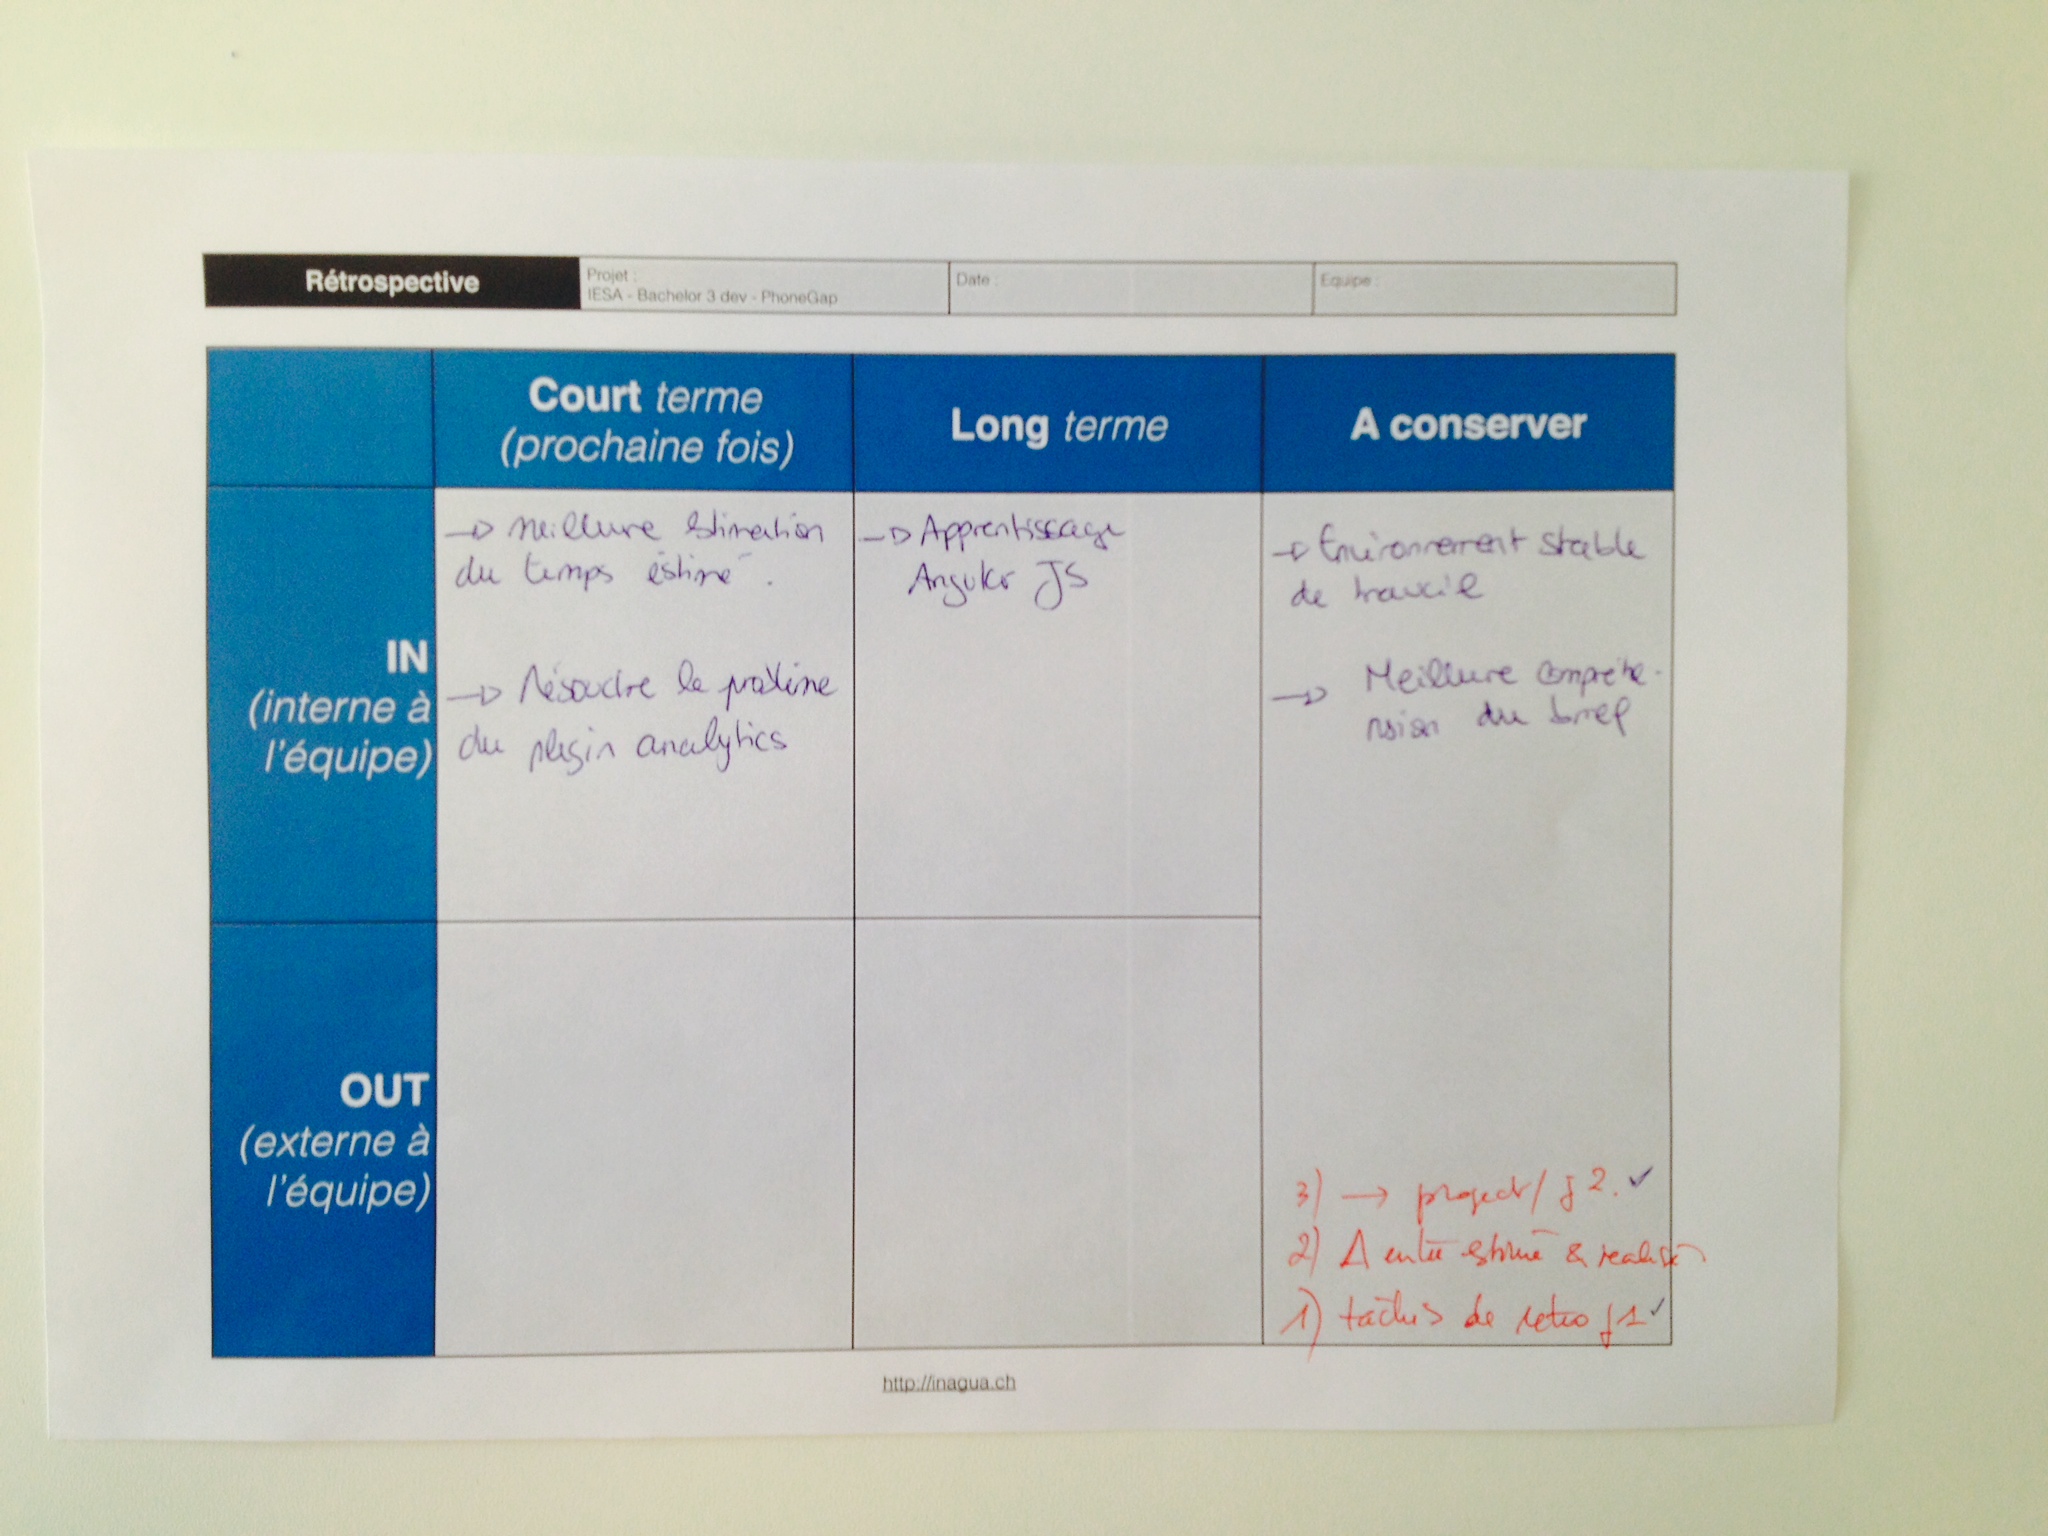 Rétrospective
Projet :
IESA - Bachelor 3 dev - PhoneGap
Date :
Equipe :
Court terme
(prochaine fois)
Long terme
A conserver
IN
(interne à
l'équipe)
→ Meilleure estimation
du temps éstimé.
→ Résoudre le problème
du plugin analytics
→ Apprentissage
Angular JS
→ Environnement stable
de travail
→ Meilleure compréhe-
nsion du brief
OUT
(externe à
l'équipe)
3) → project/ j2. ✓
2) Δ entre estimé & réalisé
1) tâches de retro j1 ✓
http://inagua.ch